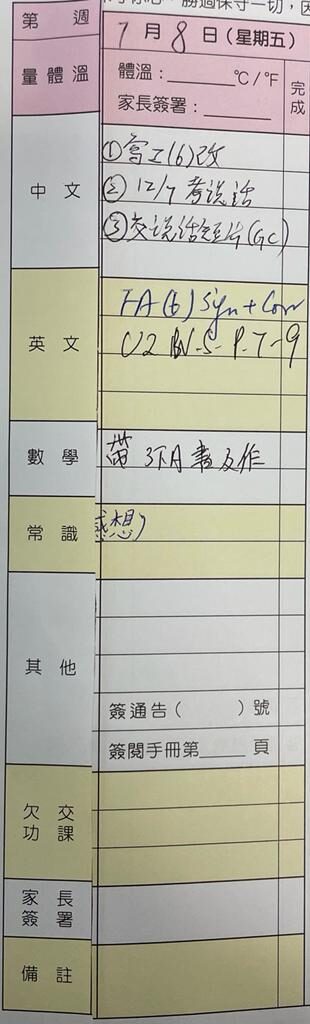 第 週
7月8日(星期五)
量體溫
體溫:______°C/°F
家長簽署:______
完成
中文
①寫工(6)改
② 12/7 考説話
③交説話短片(GC)
英文
FA(6) Sign + Corr
U2 P.7-9
數學
帶 3下A 書及作
常識
感想)
其他
簽通告( )號
簽閱手冊第____頁
欠交功課
家長簽署
備註